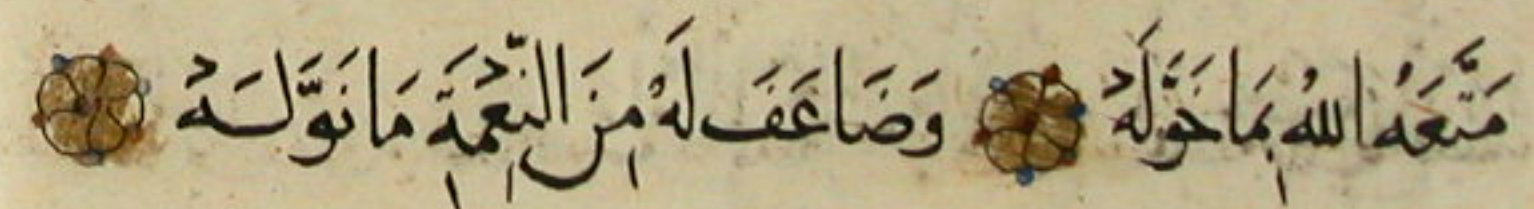 مَتَّعَهُ اللهُ بِمَا خَوَّلَهُ وَضَاعَفَ لَهُ مِنَ النِّعْمَةِ مَا نَوَّلَهُ